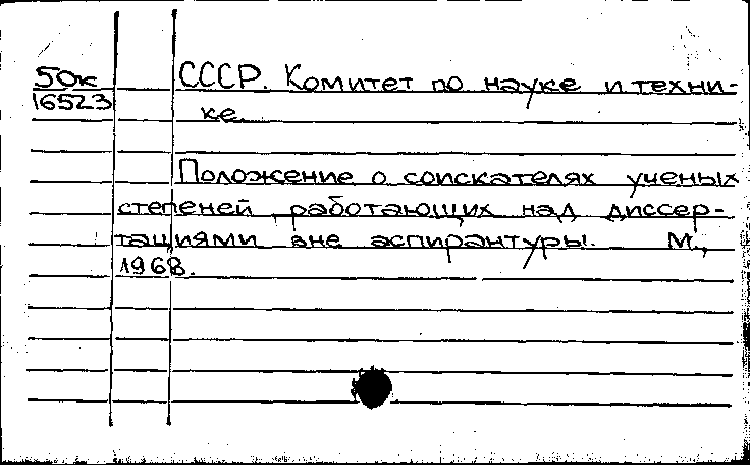 50к СССР. Комитет по науке и техни-
16523 ке.
Положение о соискателях ученых
степеней, работающих над диссер-
тациями вне аспирантуры. М.,
1968.